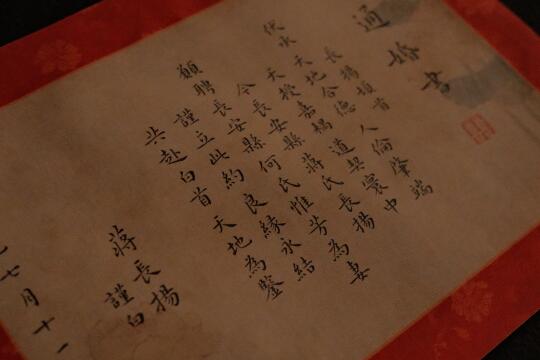 通婚書
長揚頓首
伏以 天地合德 人倫肇端
天授嘉耦 道契寰中
今長安縣蔣氏長揚
願聘長安縣何氏惟芳為妻
謹立此約 良緣永結
共赴白首 天地為鑒
蔣長揚
謹白
七月十一